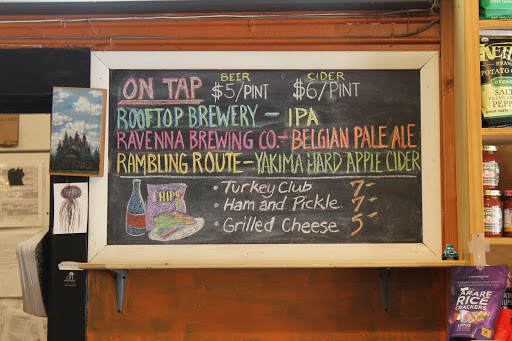 ON TAP
BEER
$5/PINT
CIDER
$6/PINT
ROOFTOP BREWERY - IPA
RAVENNA BREWING CO. - BELGIAN PALE ALE
RAMBLING ROUTE - YAKIMA HARD APPLE CIDER
CHIPS
• Turkey Club 7-
• Ham and Pickle 7-
• Grilled Cheese 5-
KETTLE
BRAND
POTATO
SALT
PEPPER
ARARE
RICE
CRACKERS